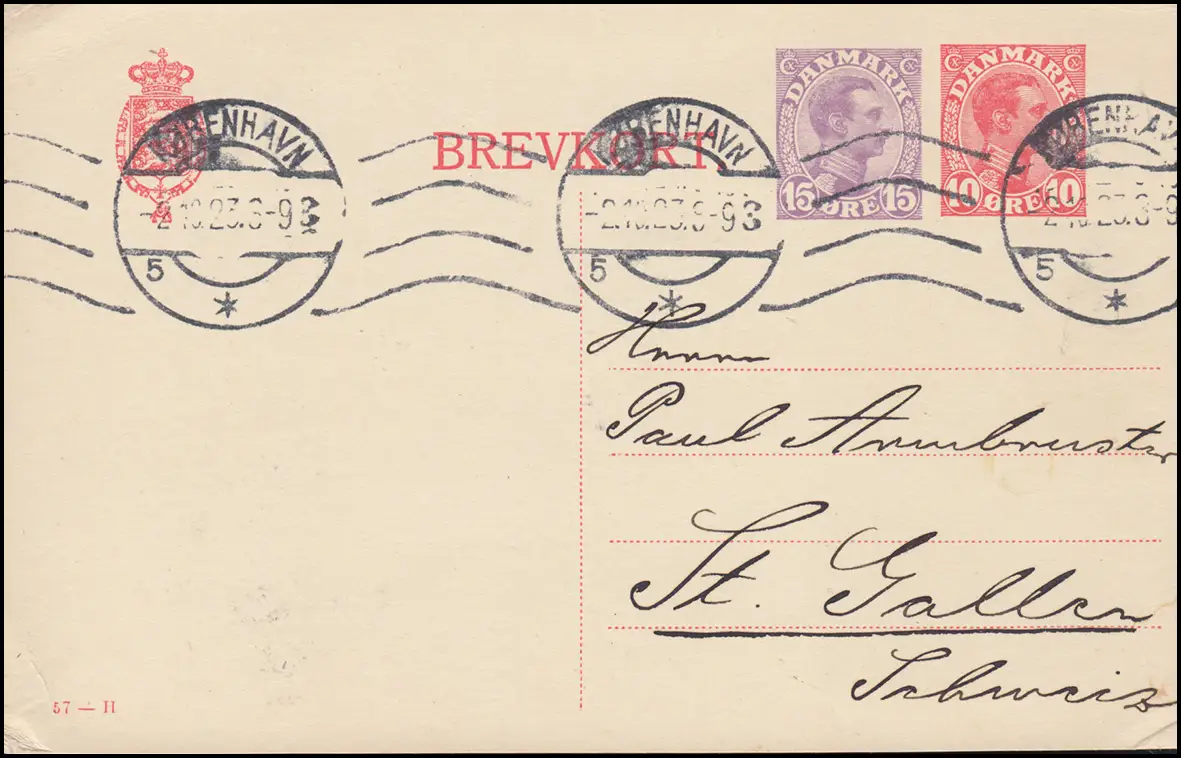 DANMARK
15 ØRE 15
DANMARK
10 ØRE 10
BREVKORT
KØBENHAVN
-2.10.23.8-9
5
KØBENHAVN
-2.10.23.8-9
5
KØBENHAVN
-2.10.23.8-9
5
Herrn
Paul Armbruster
St. Gallen
Schweiz
57 — H